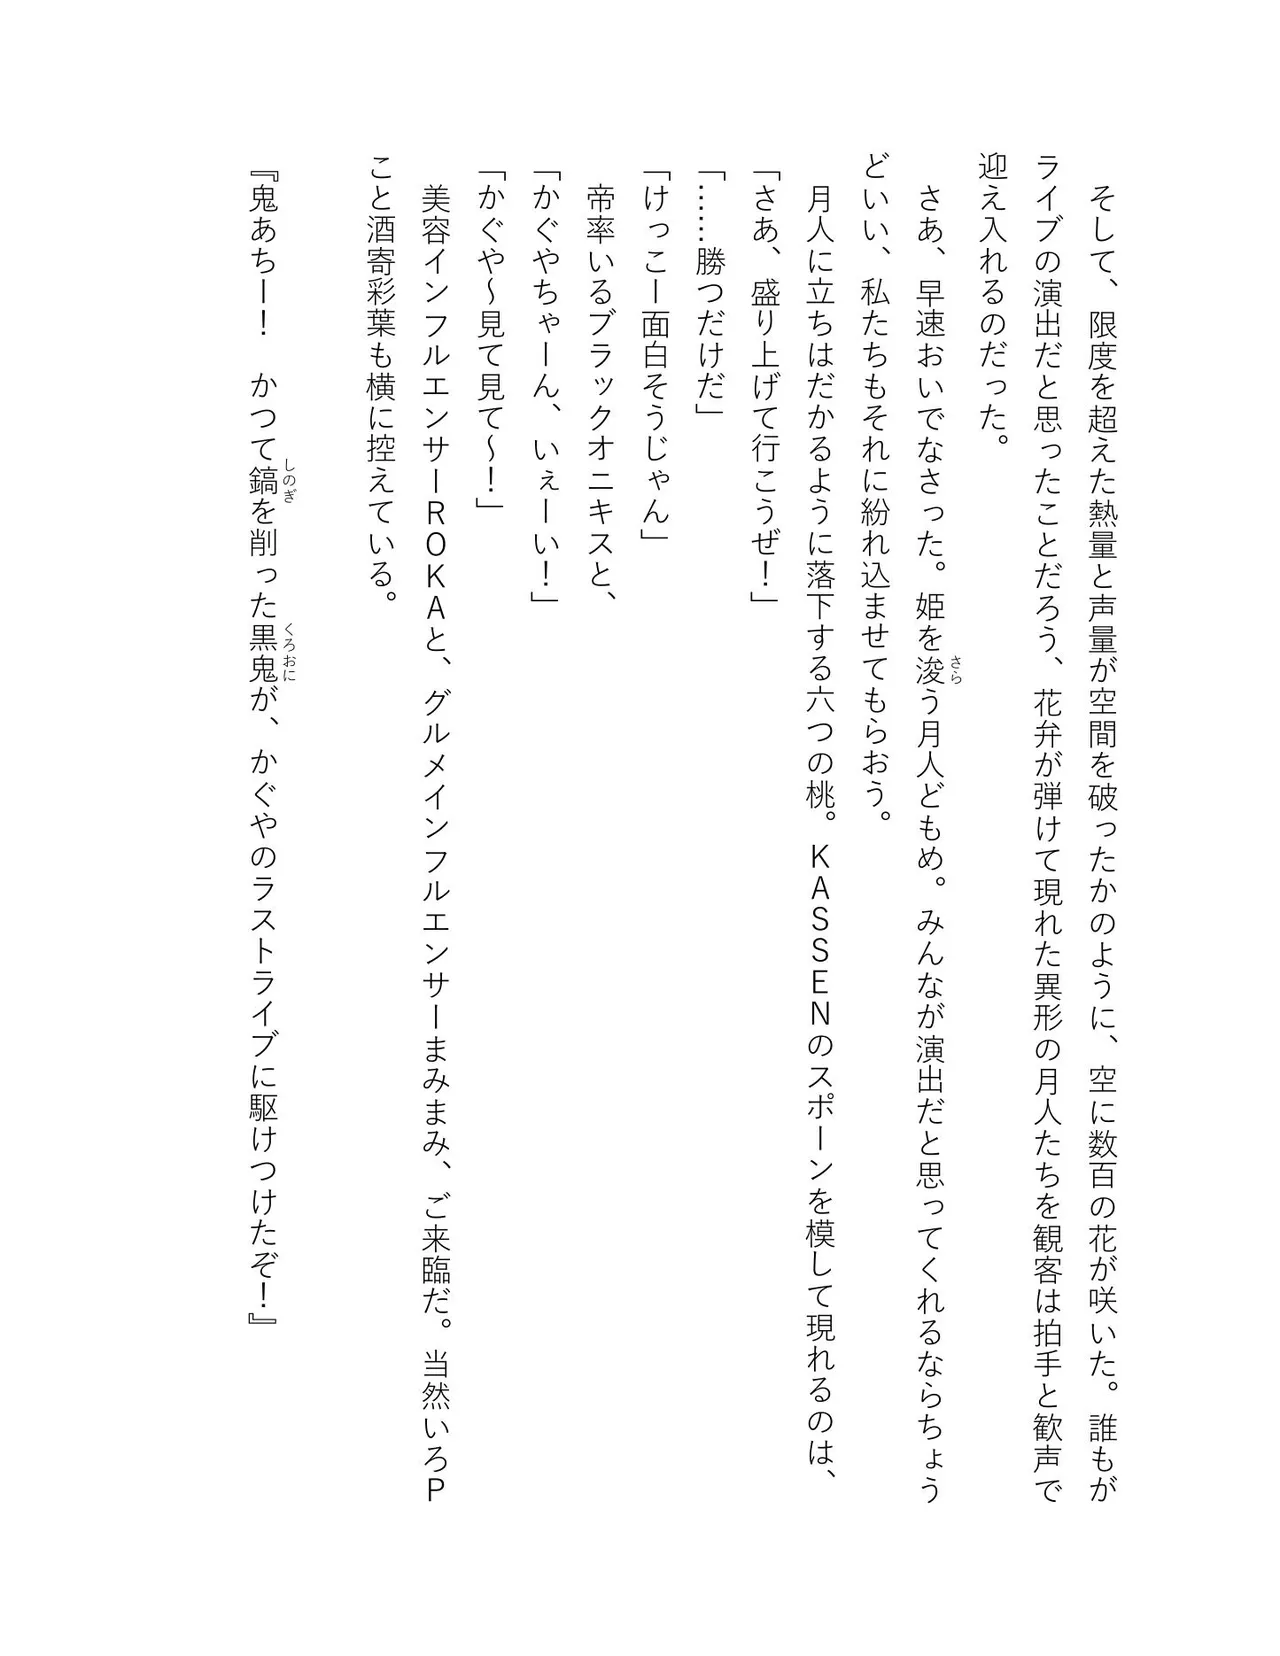 そして、限度を超えた熱量と声量が空間を破ったかのように、空に数百の花が咲いた。誰もが
ライブの演出だと思ったことだろう、花弁が弾けて現れた異形の月人たちを観客は拍手と歓声で
迎え入れるのだった。
　さあ、早速おいでなさった。姫を浚う月人どもめ。みんなが演出だと思ってくれるならちょう
さら
どいい、私たちもそれに紛れ込ませてもらおう。
　月人に立ちはだかるように落下する六つの桃。ＫＡＳＳＥＮのスポーンを模して現れるのは、
「さあ、盛り上げて行こうぜ！」
「……勝つだけだ」
「けっこー面白そうじゃん」
　帝率いるブラックオニキスと、
「かぐやちゃーん、いぇーい！」
「かぐや～見て見て～！」
　美容インフルエンサーＲＯＫＡと、グルメインフルエンサーまみまみ、ご来臨だ。当然いろＰ
こと酒寄彩葉も横に控えている。
『鬼あちー！　かつて鎬を削った黒鬼が、かぐやのラストライブに駆けつけたぞ！』
しのぎ
くろおに